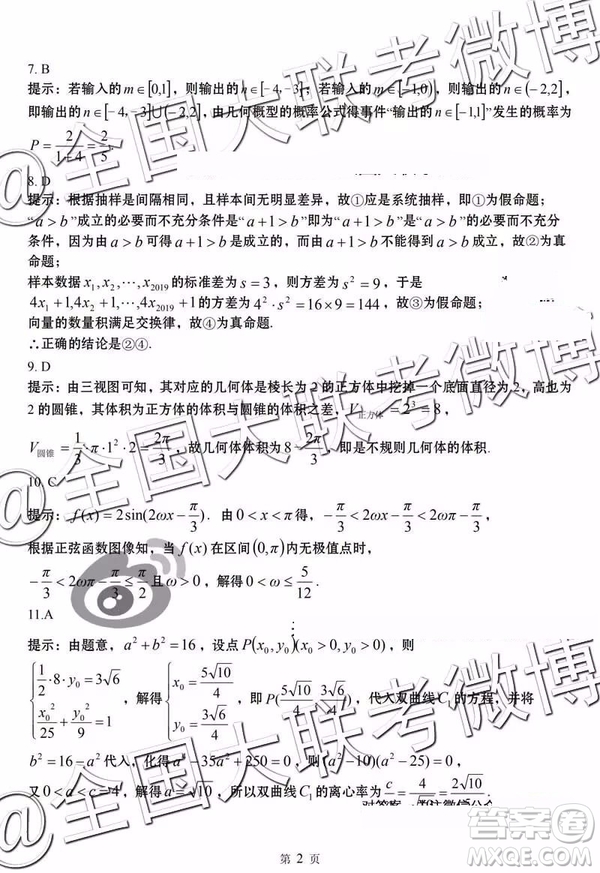 7. B
提示：若输入的 m∈[0,1]，则输出的 n∈[-4,-3]；若输入的 m∈[-1,0)，则输出的 n∈(-2,2]，
即输出的 n∈[-4,-3]∪(-2,2]，由几何概型的概率公式得事件“输出的 n∈[-1,1]”发生的概率为
P=2/(1+4)=2/5.
8. D
提示：根据抽样是间隔相同，且样本间无明显差异，故①应是系统抽样，即①为假命题；
“a>b”成立的必要而不充分条件是“a+1>b”即为“a+1>b”是“a>b”的必要而不充分
条件，因为由 a>b 可得 a+1>b 是成立的，而由 a+1>b 不能得到 a>b 成立，故②为真
命题；
样本数据 x₁,x₂,⋯,x₂₀₁₉ 的标准差为 s=3，则方差为 s²=9，于是
4x₁+1,4x₂+1,⋯,4x₂₀₁₉+1 的方差为 4²·s²=16×9=144，故③为假命题；
向量的数量积满足交换律，故④为真命题.
∴正确的结论是②④.
9. D
提示：由三视图可知，其对应的几何体是棱长为 2 的正方体中挖掉一个底面直径为 2，高也为
2 的圆锥，其体积为正方体的体积与圆锥的体积之差，V正方体=2³=8，
V圆锥=1/3·π·1²·2=2π/3，故几何体体积为 8-2π/3，即是不规则几何体的体积.
10. C
提示：f(x)=2sin(2ωx-π/3). 由 0<x<π 得，-π/3<2ωx-π/3<2ωπ-π/3，
根据正弦函数图像知，当 f(x) 在区间 (0,π) 内无极值点时，
-π/3<2ωπ-π/3≤π/2 且 ω>0，解得 0<ω≤5/12.
11.A
提示：由题意，a²+b²=16，设点 P(x₀,y₀)(x₀>0,y₀>0)，则
{1/2·8·y₀=3√6, x₀²/25+y₀²/9=1，解得 {x₀=5√10/4, y₀=3√6/4，即 P(5√10/4, 3√6/4)，代入双曲线 C₁ 的方程，并将
b²=16-a² 代入，化得 a⁴-35a²+250=0，则 (a²-10)(a²-25)=0，
又 0<a<c=4，解得 a=√10，所以双曲线 C₁ 的离心率为 c/a=4/√10=2√10/5.
第 2 页
@全国大联考微博
@全国大联考微博
@全国大联考微博
答案卷
MXQE.COM